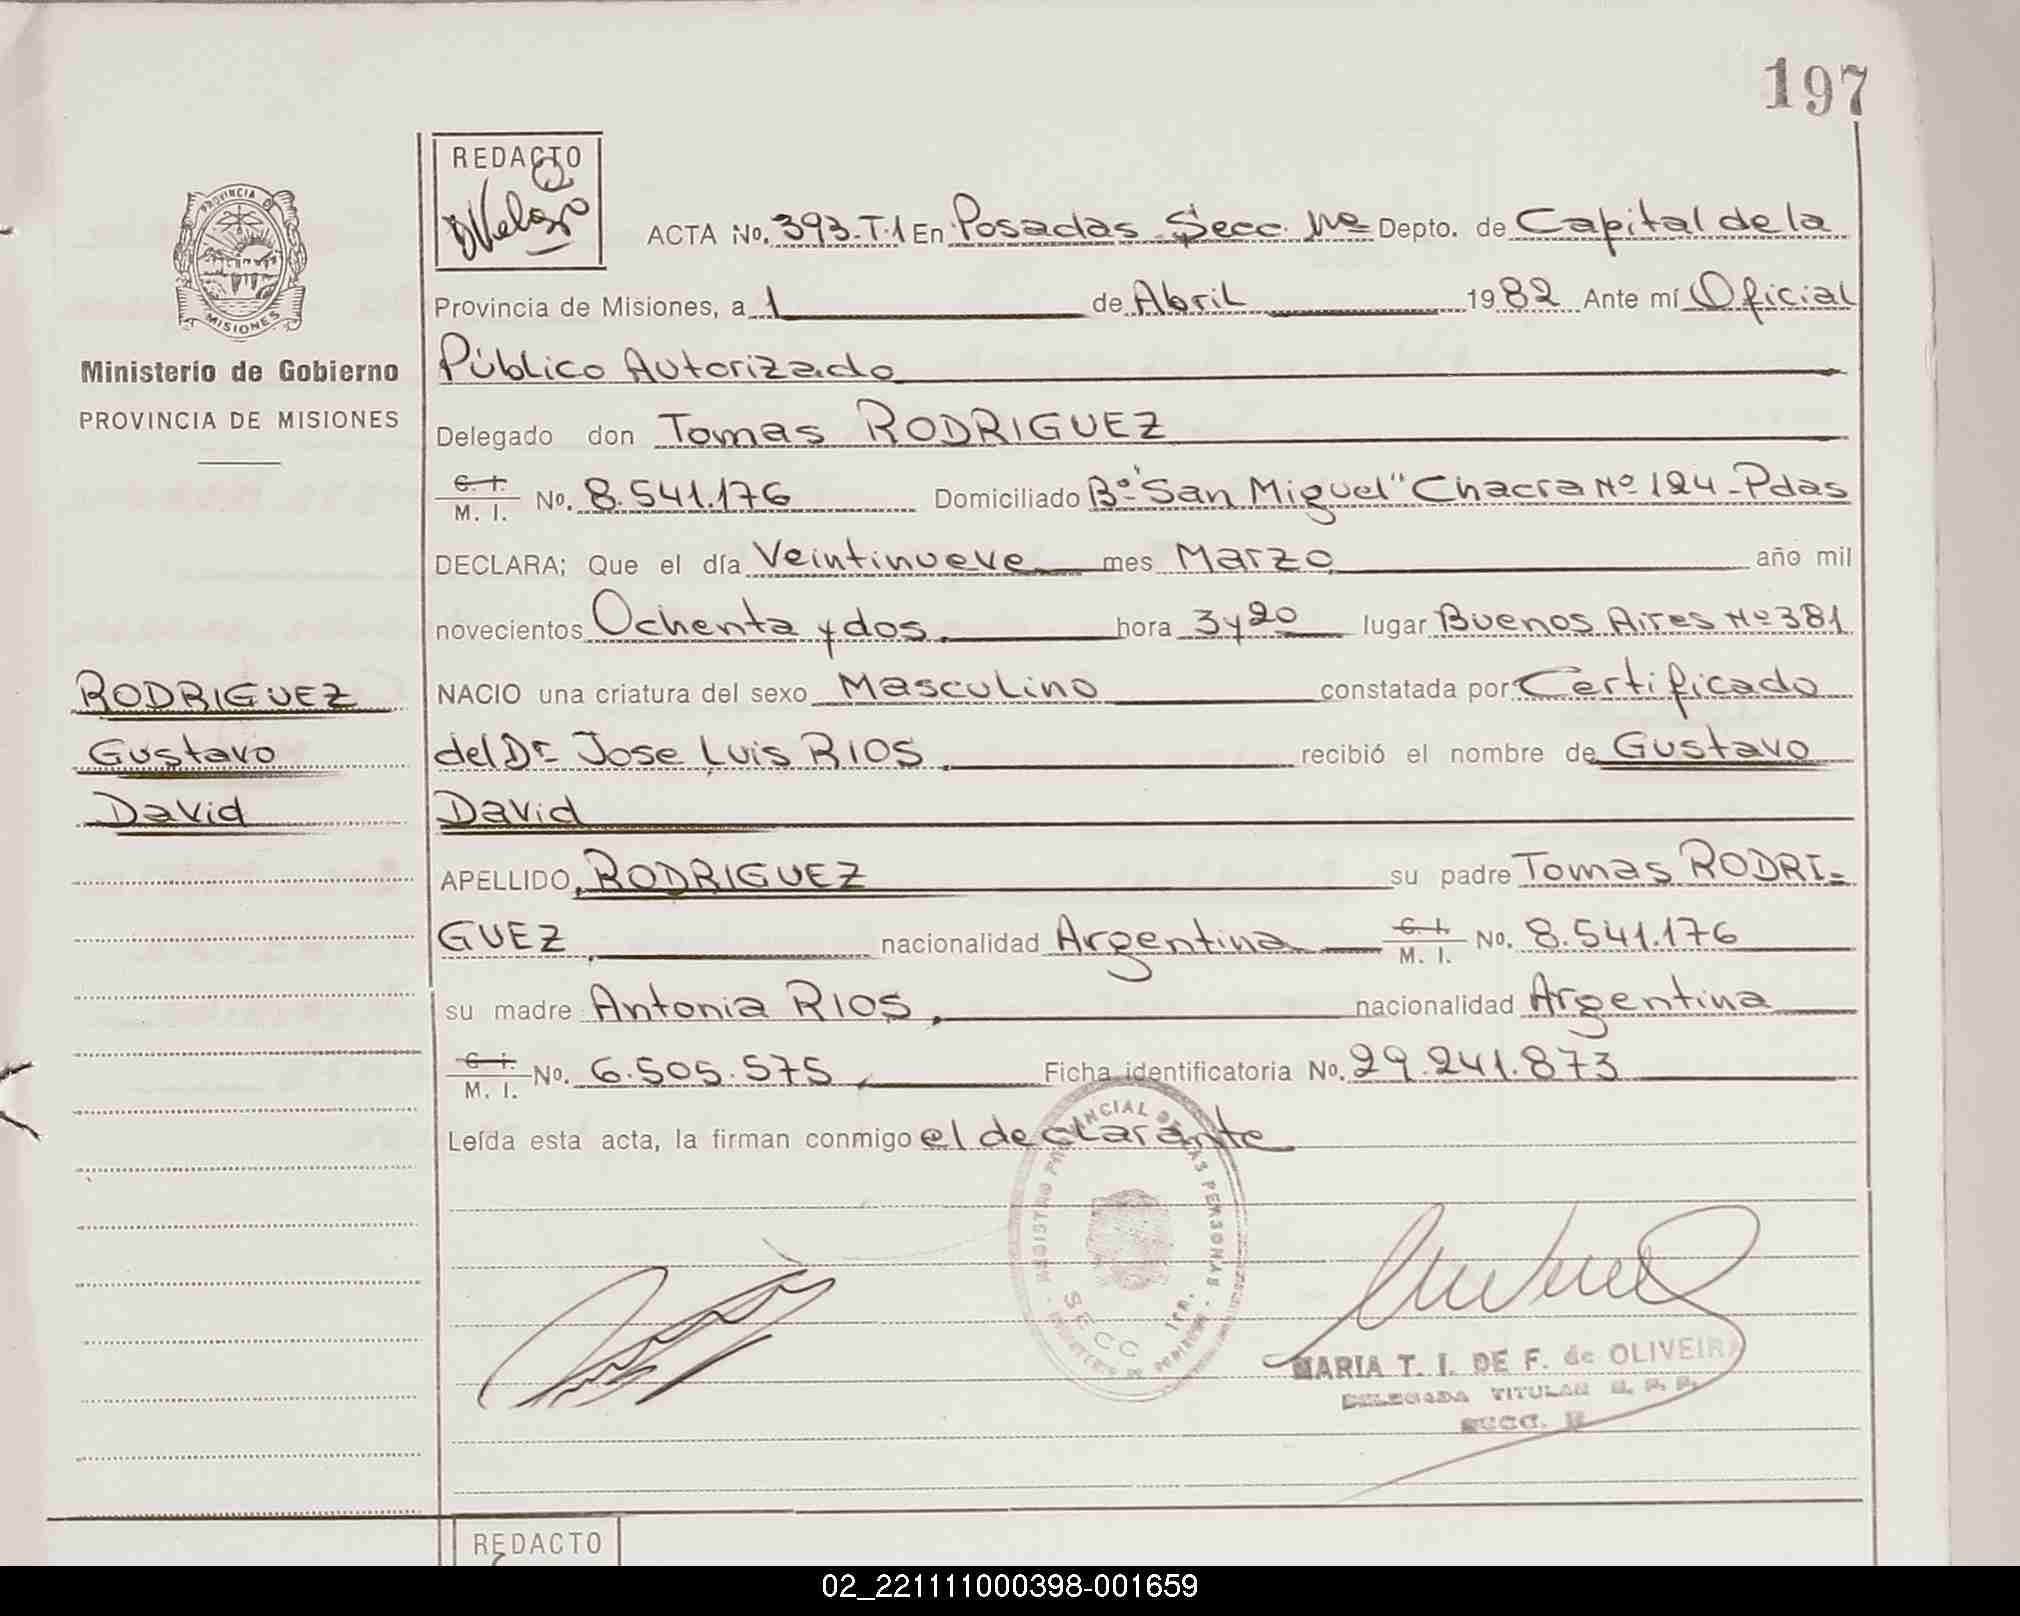 197
REDACTO
PROVINCIA DE
MISIONES
Ministerio de Gobierno
PROVINCIA DE MISIONES
ACTA No. 393-T.1 En Posadas Secc. 1ra Depto. de Capital de la
Provincia de Misiones, a 1 de Abril 1982 Ante mí Oficial
Público Autorizado
Delegado don Tomas RODRIGUEZ
C. I. M. I. No. 8.541.176 Domiciliado Bº "San Miguel" Chacra Nº 124-Pdas
DECLARA; Que el día Veintinueve mes Marzo año mil
novecientos Ochenta y dos, hora 3 y 20 lugar Buenos Aires Nº 381
RODRIGUEZ
NACIO una criatura del sexo Masculino constatada por Certificado
Gustavo
del Dr Jose Luis RIOS, recibió el nombre de Gustavo
David
David
APELLIDO, RODRIGUEZ su padre Tomas RODRI=
GUEZ, nacionalidad Argentina C. I. M. I. No. 8.541.176
su madre Antonia RIOS, nacionalidad Argentina
C. I. M. I. No. 6.505.575, Ficha identificatoria No. 29.241.873
Leída esta acta, la firman conmigo el declarante
REGISTRO PROVINCIAL DE LAS PERSONAS
SECC 1ra.
MARIA T. I. DE F. de OLIVEIRA
DELEGADA TITULAR R. P. P.
SECC.
REDACTO
02_221111000398-001659